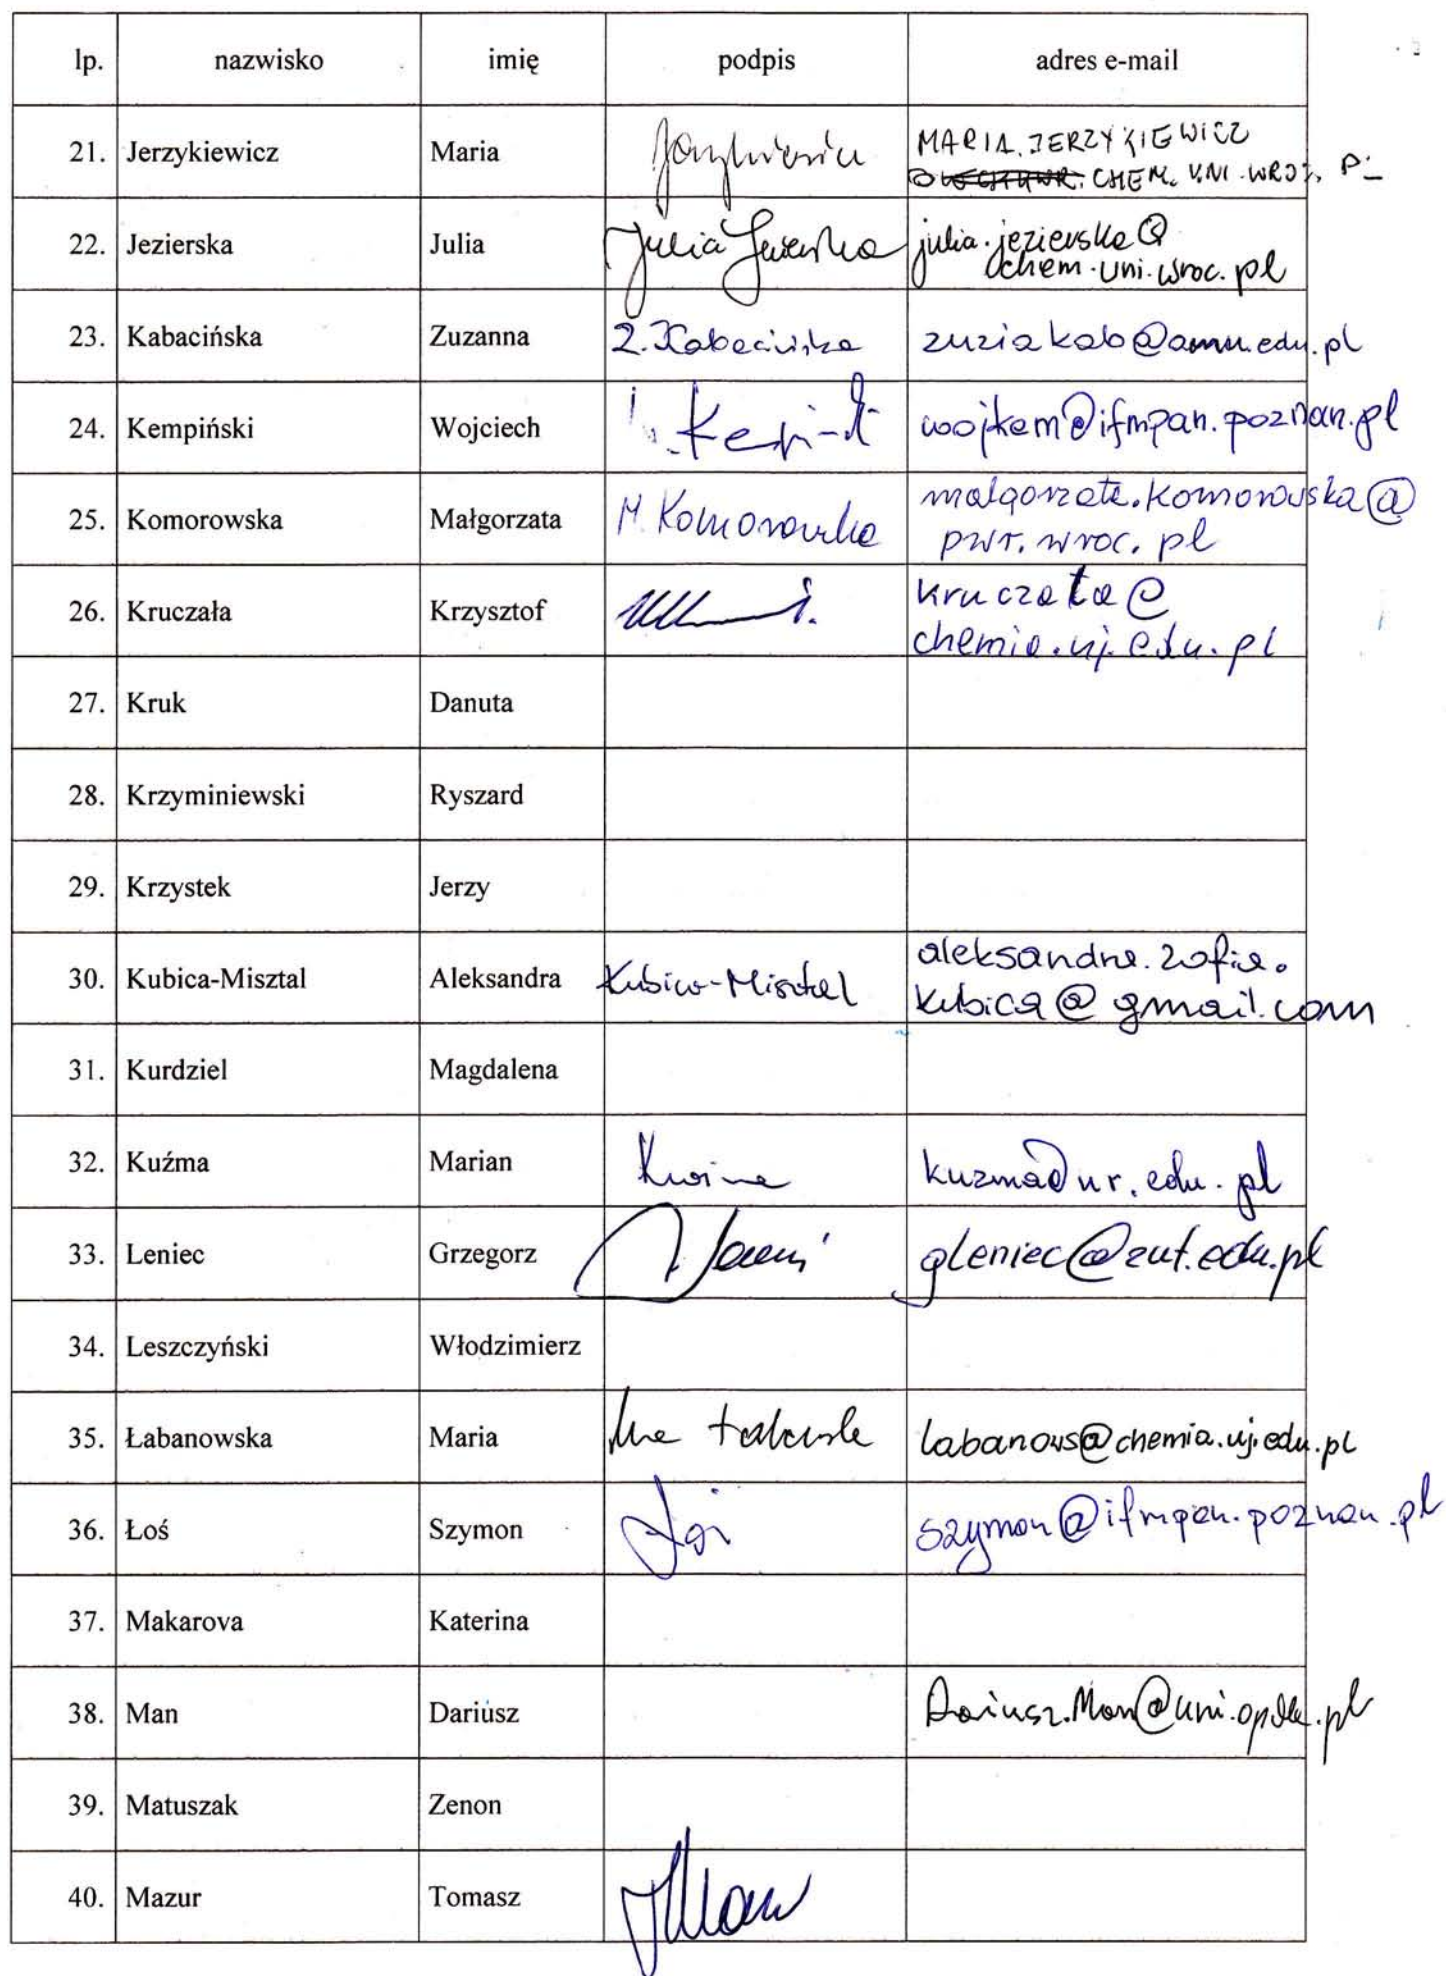 lp. nazwisko imię podpis adres e-mail
21. Jerzykiewicz Maria MARIA.JERZYKIEWICZ
CHEM. UNI.WROC. PL
22. Jezierska Julia Julia Jezierska julia.jezierska@
chem.uni.wroc.pl
23. Kabacińska Zuzanna Z. Kabacińska zuziakab@amu.edu.pl
24. Kempiński Wojciech wojkem@ifmpan.poznan.pl
25. Komorowska Małgorzata M. Komorowska malgorzata.komorowska@
pwr.wroc.pl
26. Kruczała Krzysztof kruczala@
chemia.uj.edu.pl
27. Kruk Danuta
28. Krzyminiewski Ryszard
29. Krzystek Jerzy
30. Kubica-Misztal Aleksandra Kubica-Misztal aleksandra.zofia.
kubica@gmail.com
31. Kurdziel Magdalena
32. Kuźma Marian Kuźma kuzma@ur.edu.pl
33. Leniec Grzegorz gleniec@zut.edu.pl
34. Leszczyński Włodzimierz
35. Łabanowska Maria labanows@chemia.uj.edu.pl
36. Łoś Szymon Łoś szymon@ifmpan.poznan.pl
37. Makarova Katerina
38. Man Dariusz Dariusz.Man@uni.opole.pl
39. Matuszak Zenon
40. Mazur Tomasz